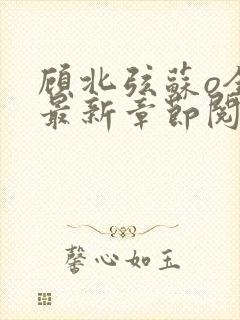 顾北弦蘇o全
最新章節閱
馨心如玉